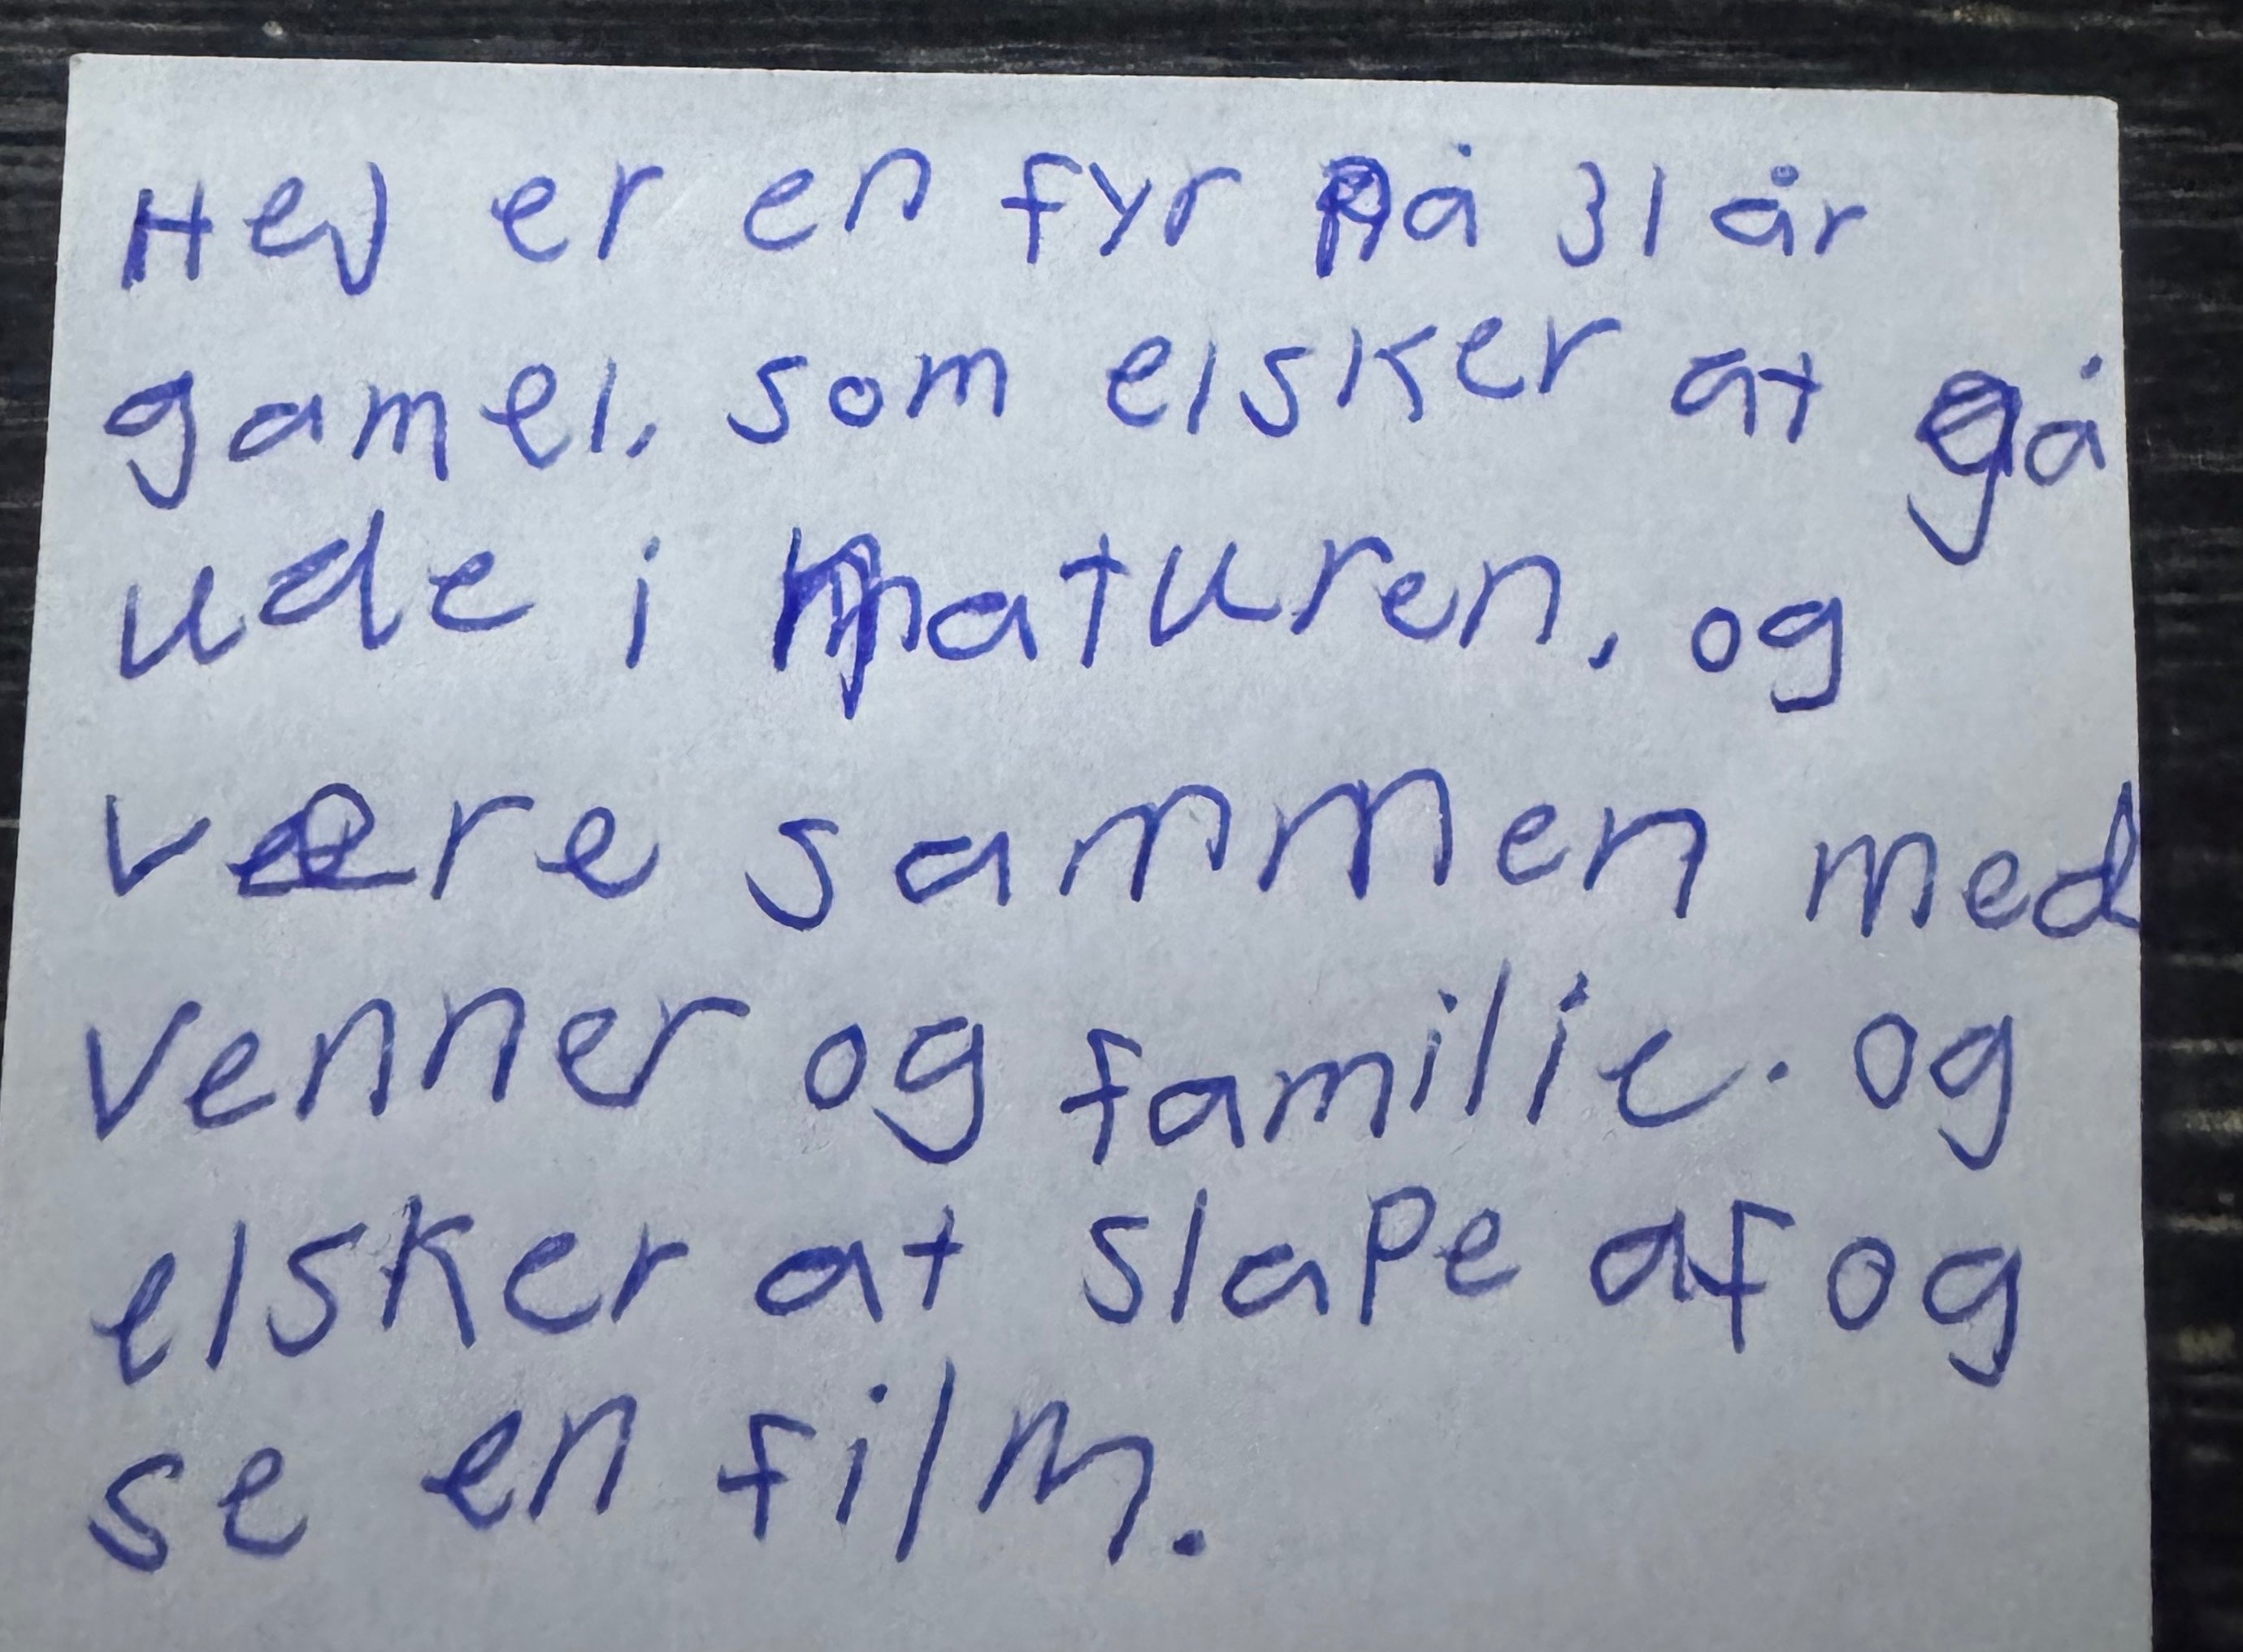 Hej er en fyr på 31 år
gamel, som elsker at gå
ude i naturen, og
være sammen med
venner og familie. og
elsker at slape af og
se en film.